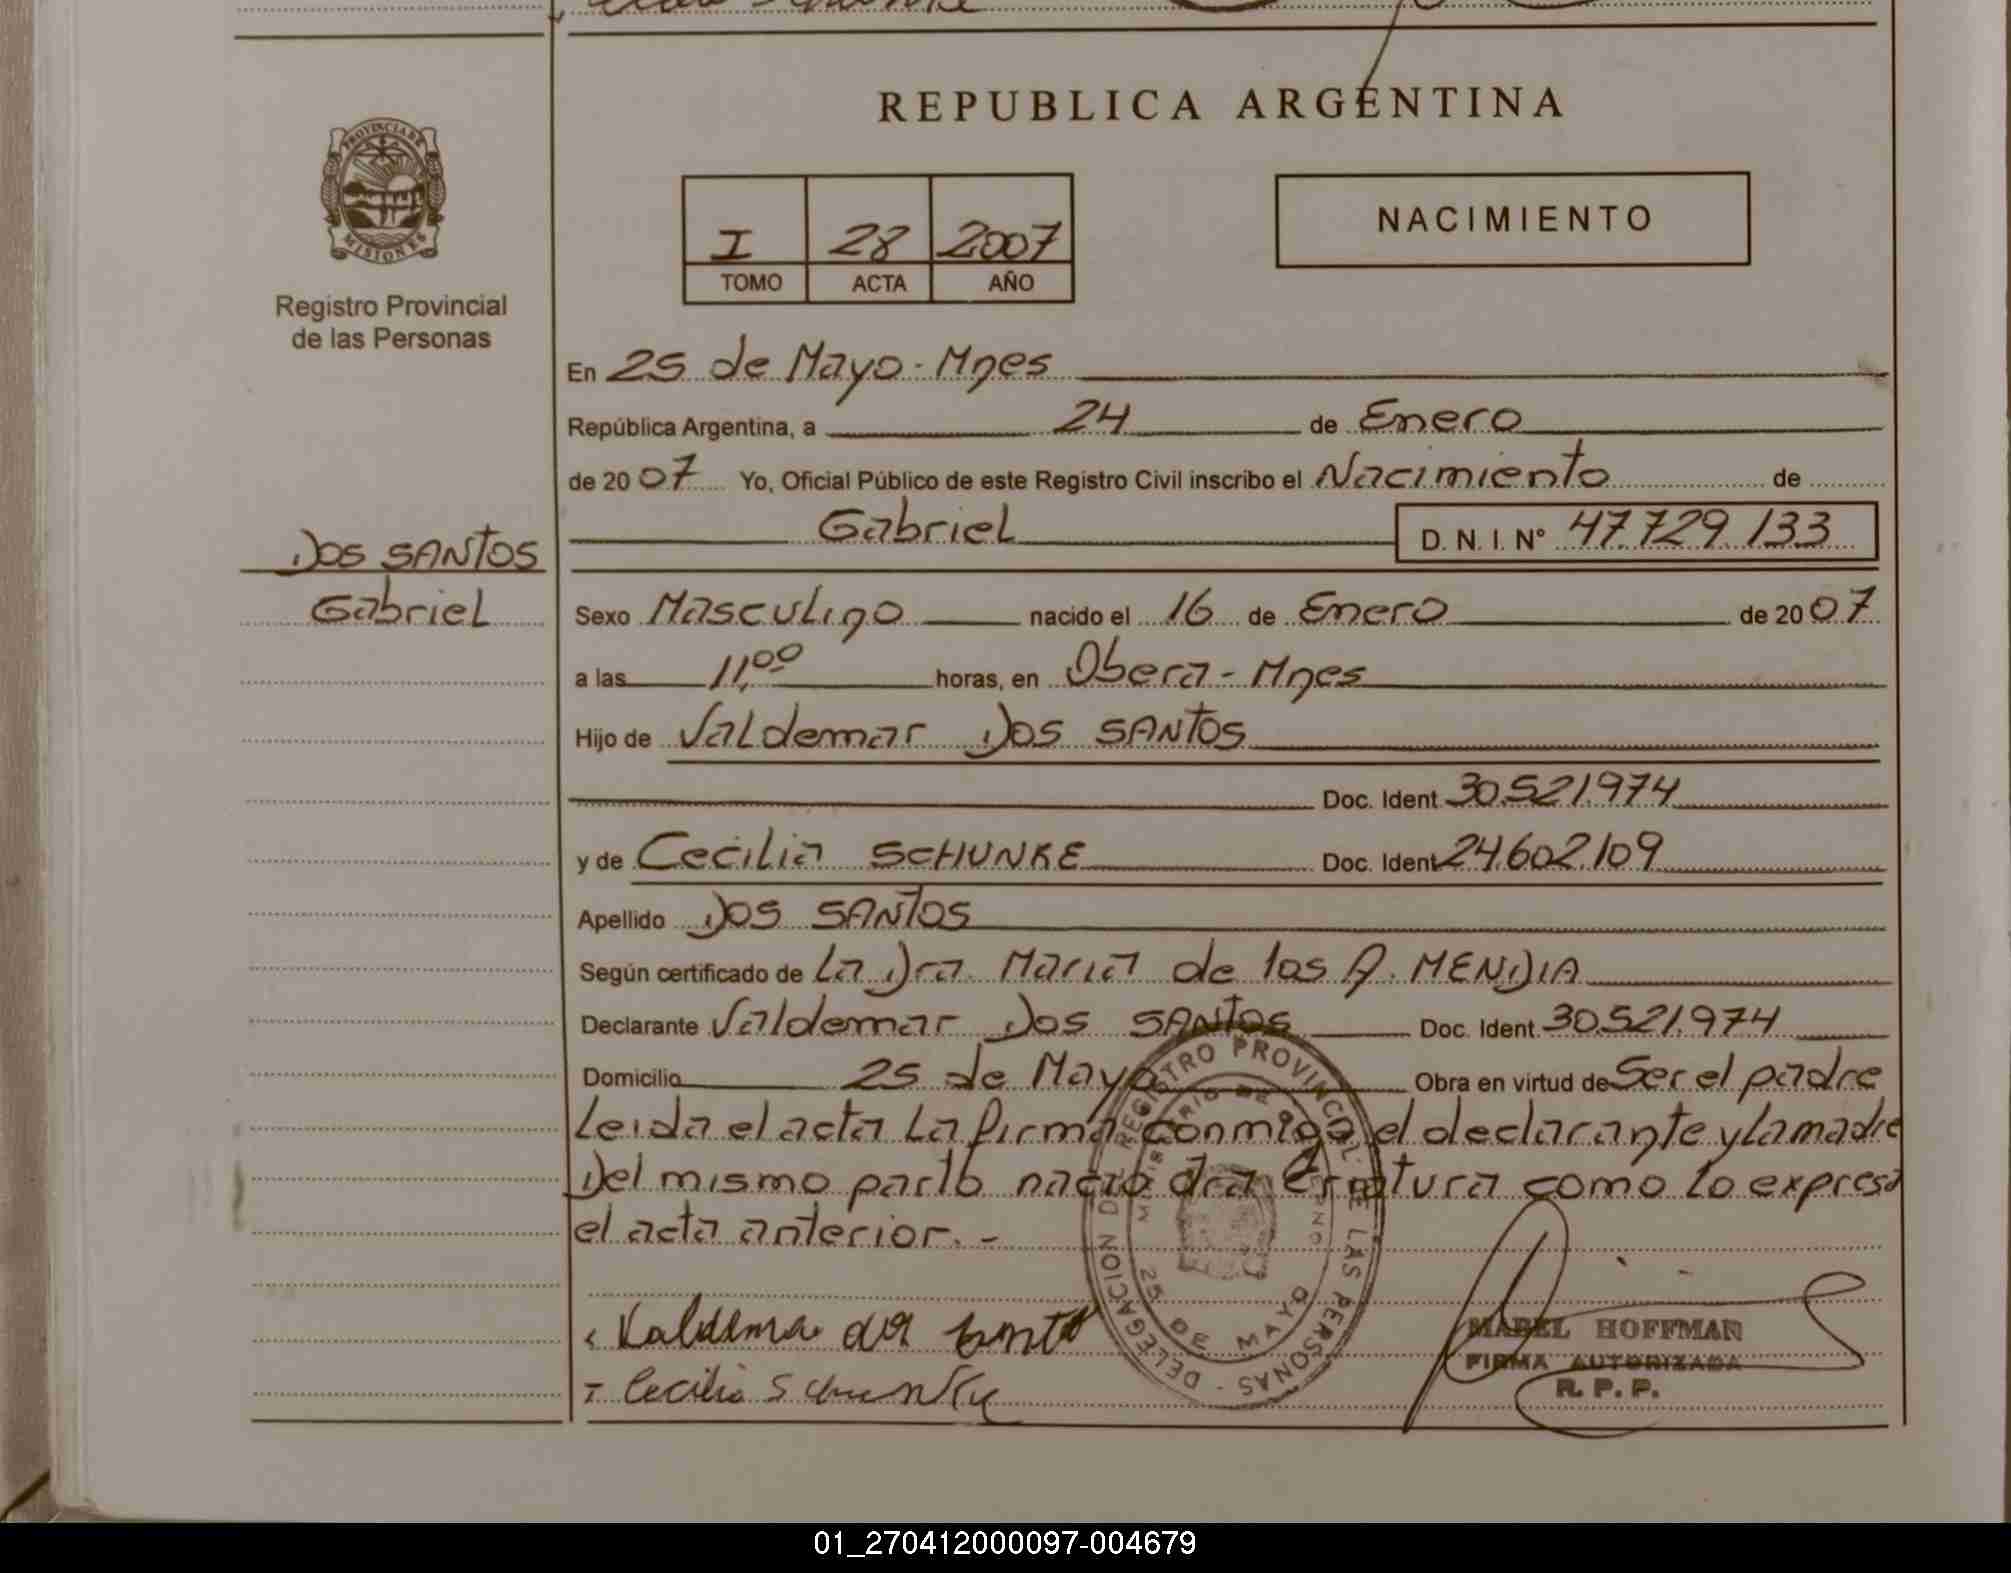 REPUBLICA ARGENTINA
PROVINCIA DE
MISIONES
Registro Provincial
de las Personas
I 28 2007
TOMO ACTA AÑO
NACIMIENTO
En 25 de Mayo - Mnes
República Argentina, a 24 de Enero
de 20 07 Yo, Oficial Público de este Registro Civil inscribo el Nacimiento de
Gabriel D. N. I. N° 47.729.133
DOS SANTOS
Gabriel
Sexo Masculino nacido el 16 de Enero de 20 07
a las 11,00 horas, en Obera - Mnes
Hijo de Valdemar DOS SANTOS
Doc. Ident 30.521.974
y de Cecilia SCHUNKE Doc. Ident 24.602.109
Apellido DOS SANTOS
Según certificado de La Dra. Maria de los A. MENDIA
Declarante Valdemar DOS SANTOS Doc. Ident 30.521.974
Domicilio 25 de Mayo Obra en virtud de Ser el padre
Leida el acta La firma conmigo el declarante y la madre
Del mismo parto nacio dra Criatura como lo expresa
el acta anterior. -
Valdema dos Santo
Cecilia Schunke
DELEGACION DEL REGISTRO PROVINCIAL DE LAS PERSONAS -
MINISTERIO DE GOBIERNO
25 DE MAYO
MABEL HOFFMAN
FIRMA AUTORIZADA
R. P. P.
01_270412000097-004679